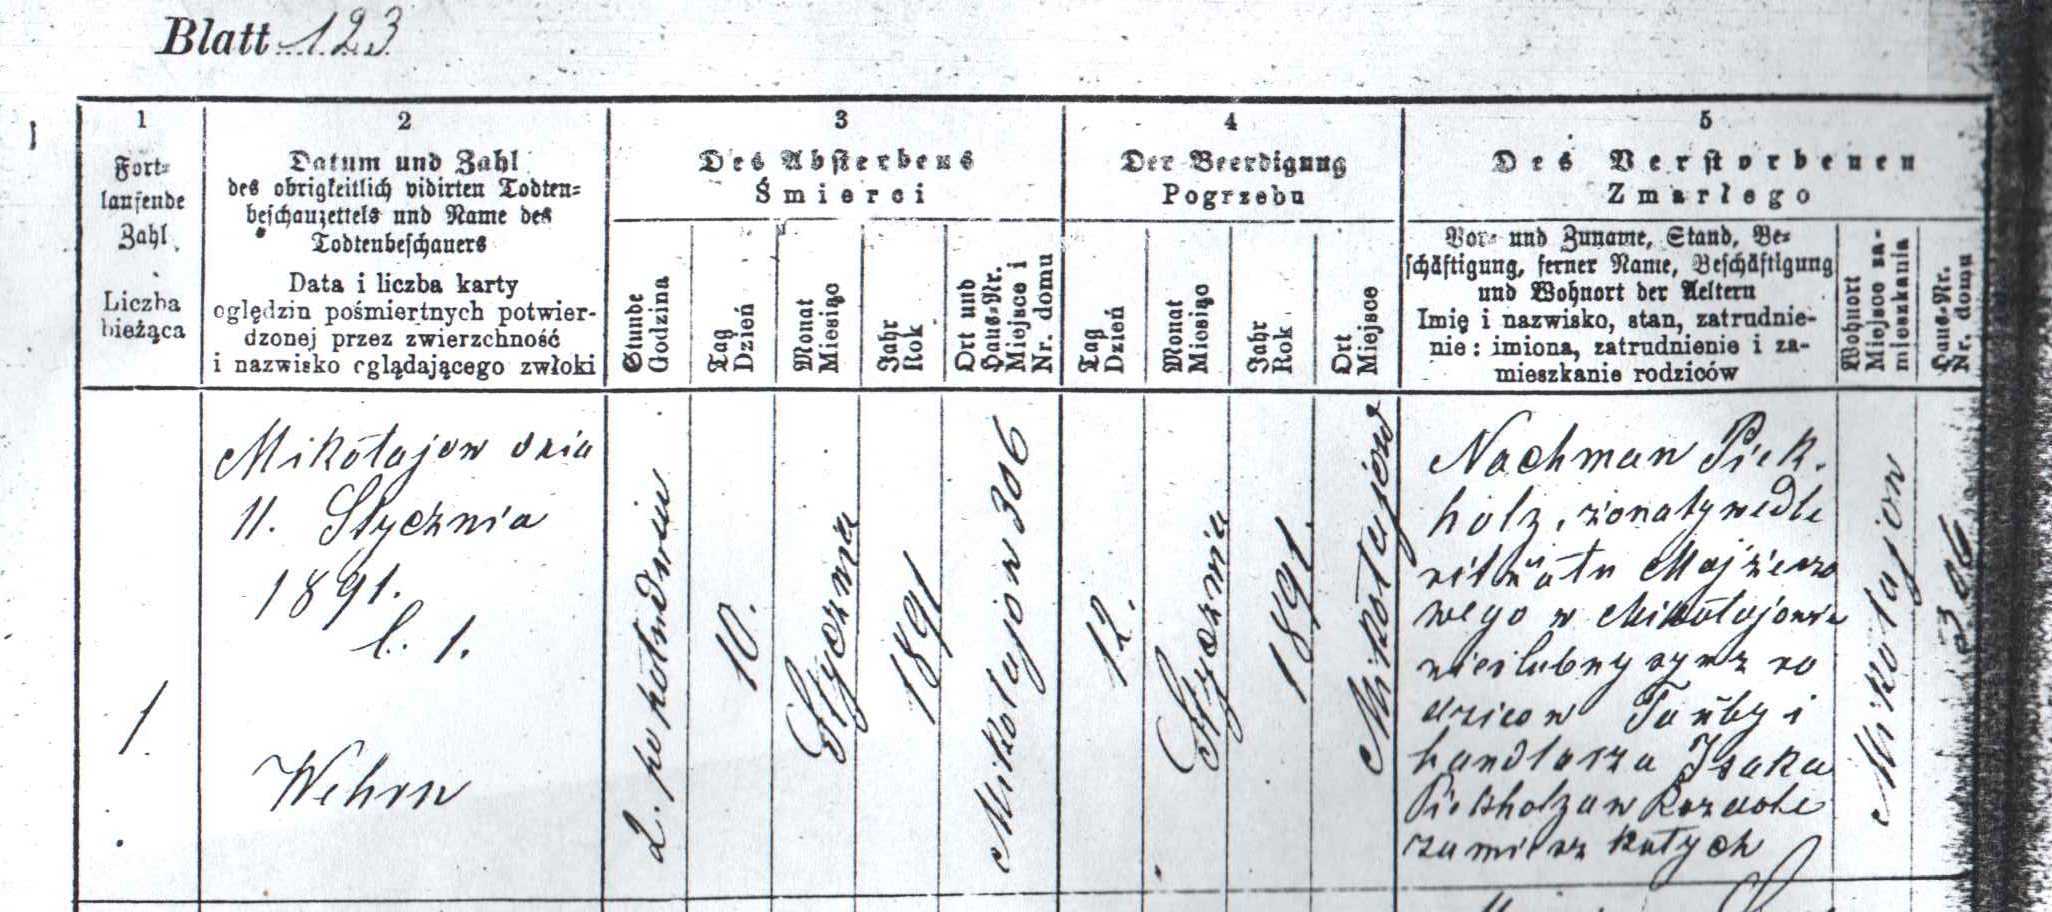 Blatt 123
1
Fort-
laufende
Zahl
Liczba
bieżąca
2
Datum und Zahl
des obrigkeitlich vidirten Todten-
beschauzettels und Name des
Todtenbeschauers
Data i liczba karty
oględzin pośmiertnych potwier-
dzonej przez zwierzchność
i nazwisko oglądającego zwłoki
3
Des Absterbens
Śmierci
Stunde
Godzina
Tag
Dzień
Monat
Miesiąc
Jahr
Rok
Ort und
Haus-Nr.
Miejsce i
Nr. domu
4
Der Beerdigung
Pogrzebu
Tag
Dzień
Monat
Miesiąc
Jahr
Rok
Ort
Miejsce
5
Des Verstorbenen
Zmarłego
Vor- und Zuname, Stand, Be-
schäftigung, ferner Name, Beschäftigung
und Wohnort der Aeltern
Imię i nazwisko, stan, zatrudnie-
nie: imiona, zatrudnienie i za-
mieszkanie rodziców
Wohnort
Miejsce za-
mieszkania
Haus-Nr.
Nr. domu
1.
Mikołajow dnia
11. Stycznia
1891.
l. 1.
Wehrn
2. po południu
10.
Stycznia
1891
Mikołajow 306
12.
Stycznia
1891.
Mikołajow
Nachman Piek.
holz, żonaty wedle
rituału Mojżeszo
wego w Mikołajowie
nieślubny syn z ro
dziców Tauby i
handlarza Isaka
Piekholza w Rozdole
zamieszkałych
Mikołajow
306